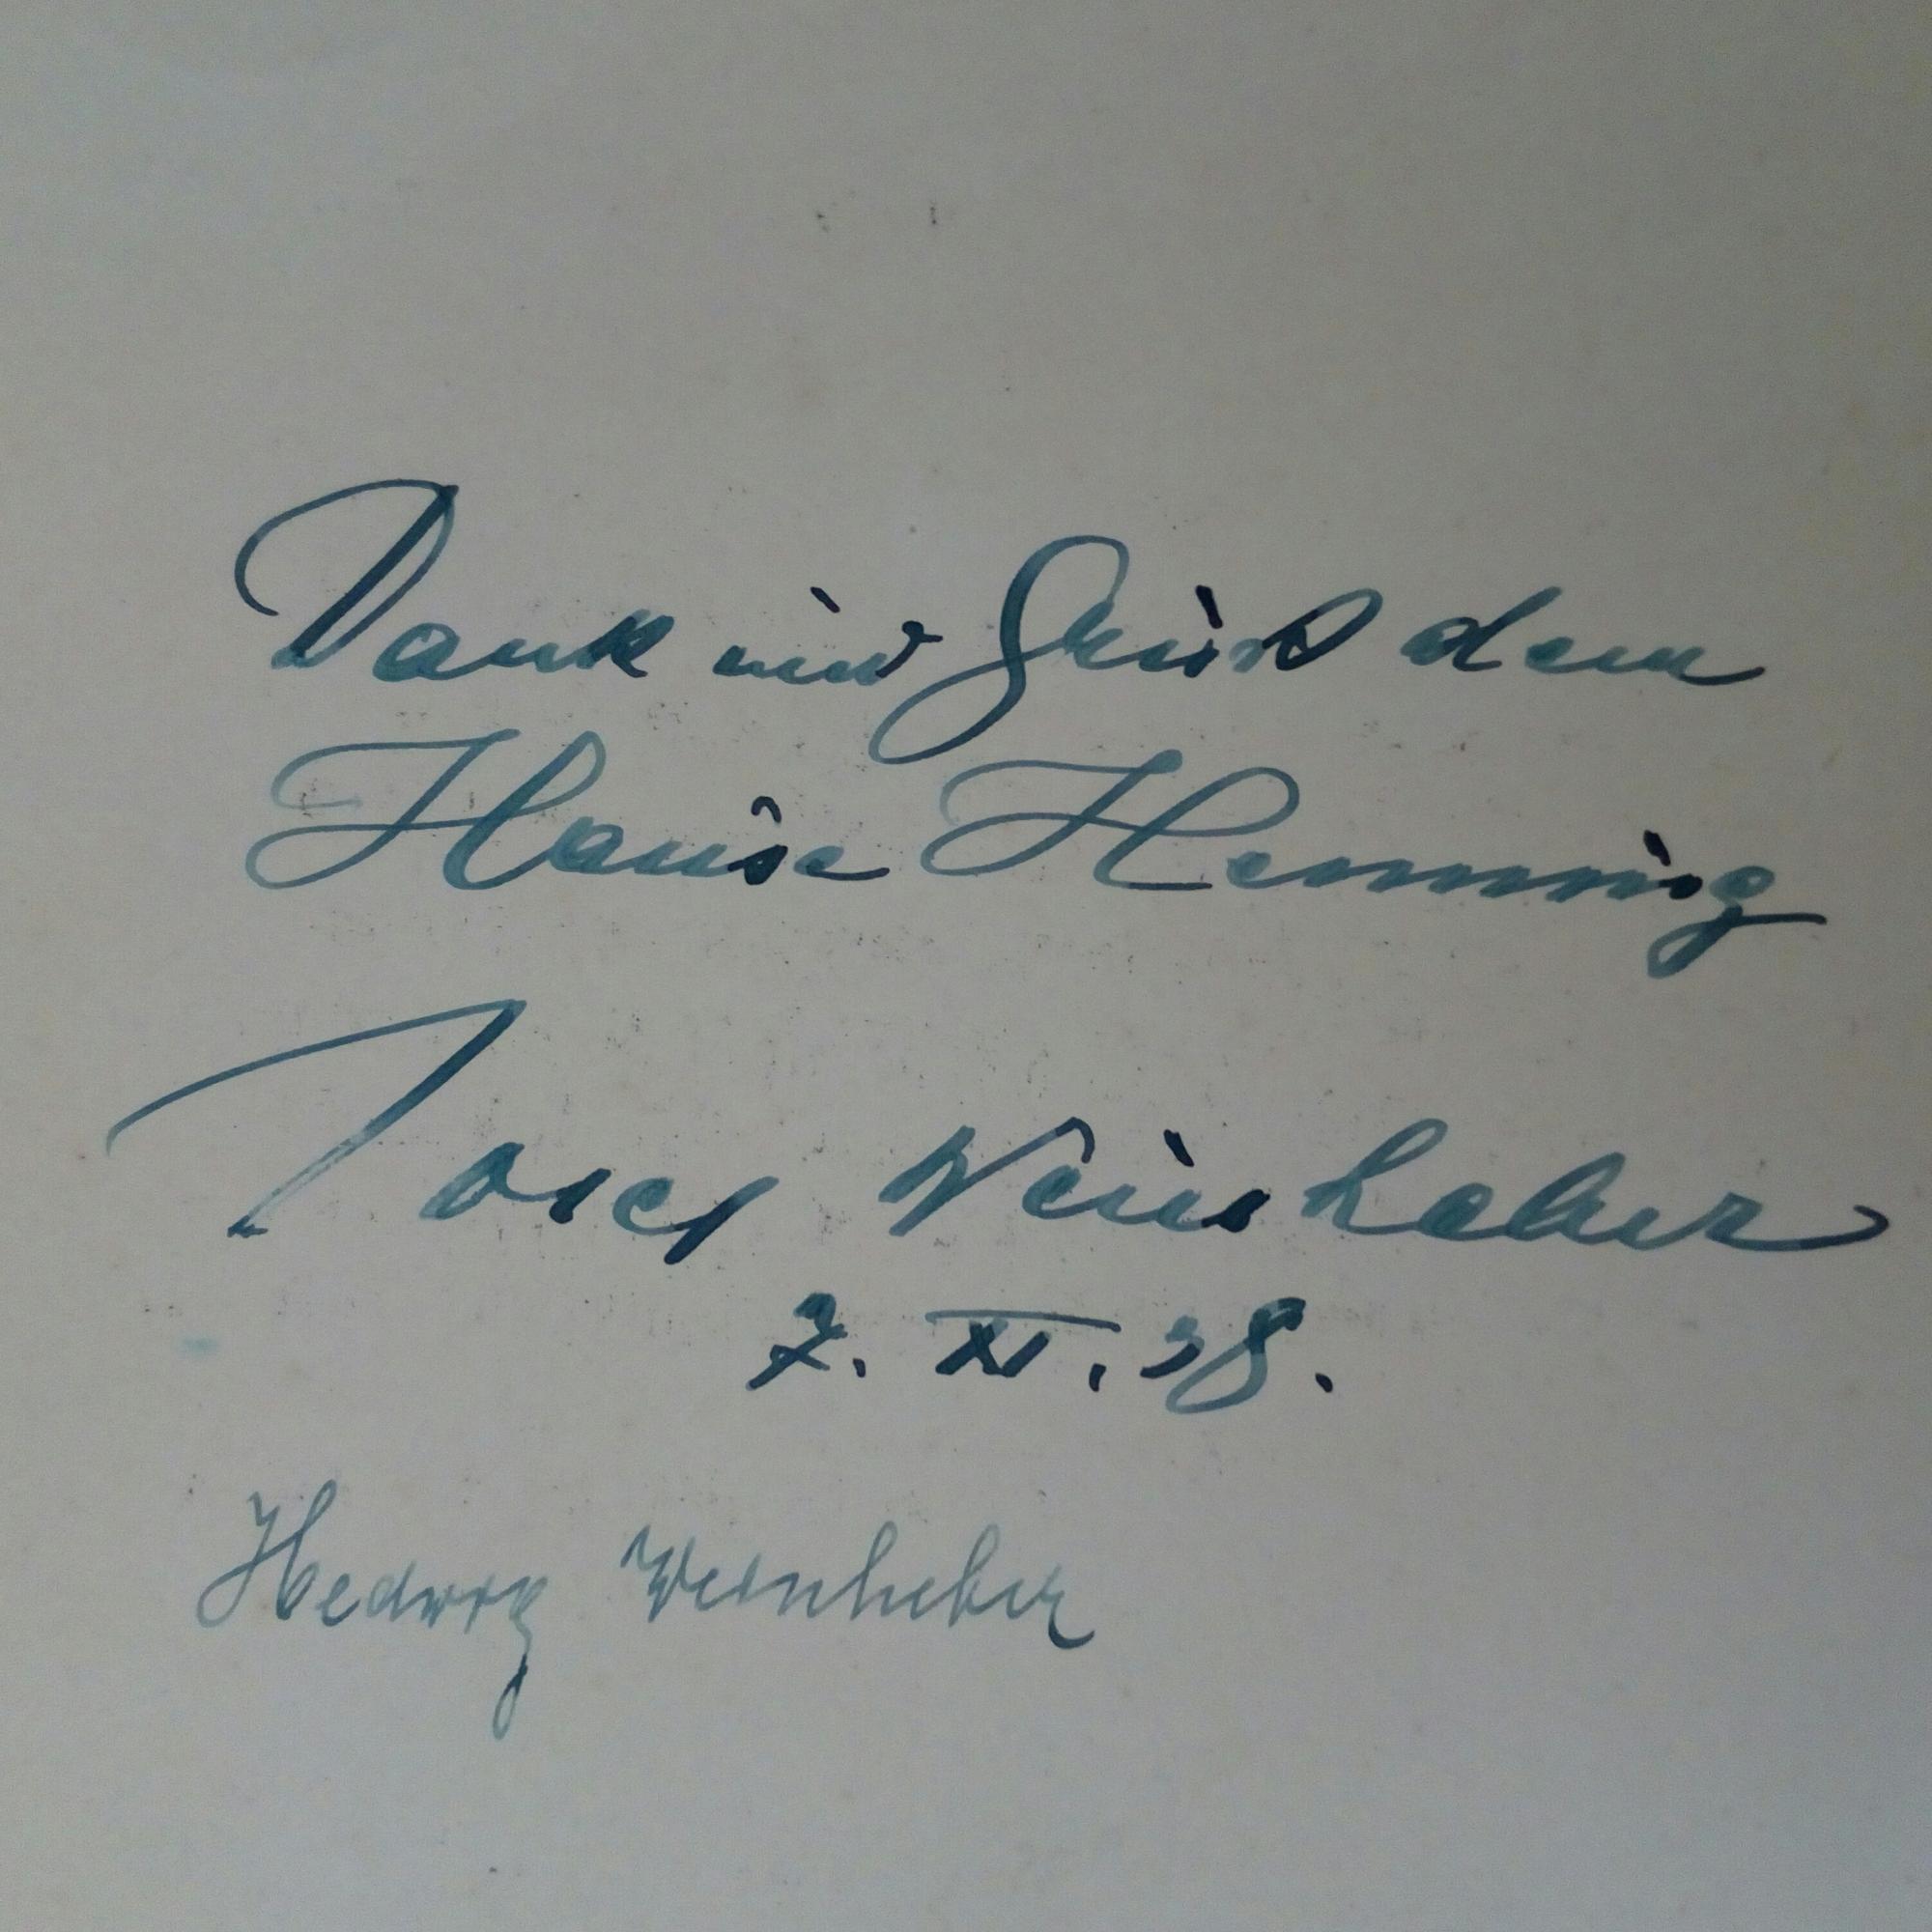 Dank und Gruß dem
Hause Henning
Josef Weinheber
7. XI. 38.
Hedwig Weinheber